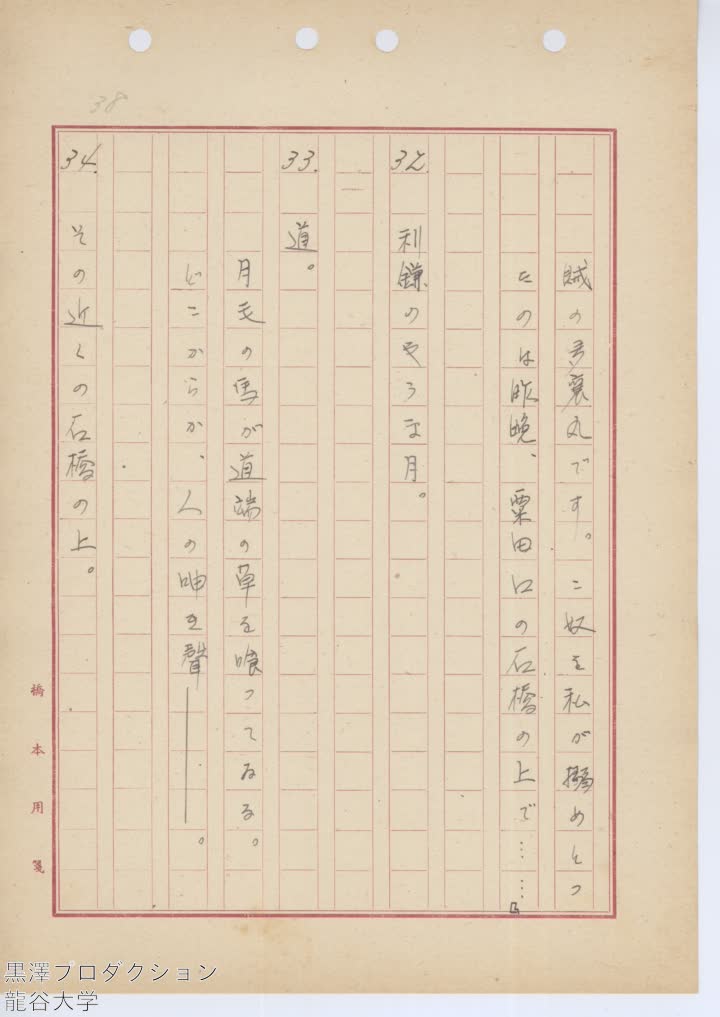 38
賊の多襄丸です。こ奴を私が搦めとつ
たのは昨晩、粟田口の石橋の上で……』
32. 利鎌のやうな月。
33. 道。
月毛の馬が道端の草を喰つてゐる。
どこからか、人の呻き聲――――。
34. その近くの石橋の上。
橋本用箋
黒澤プロダクション
龍谷大学